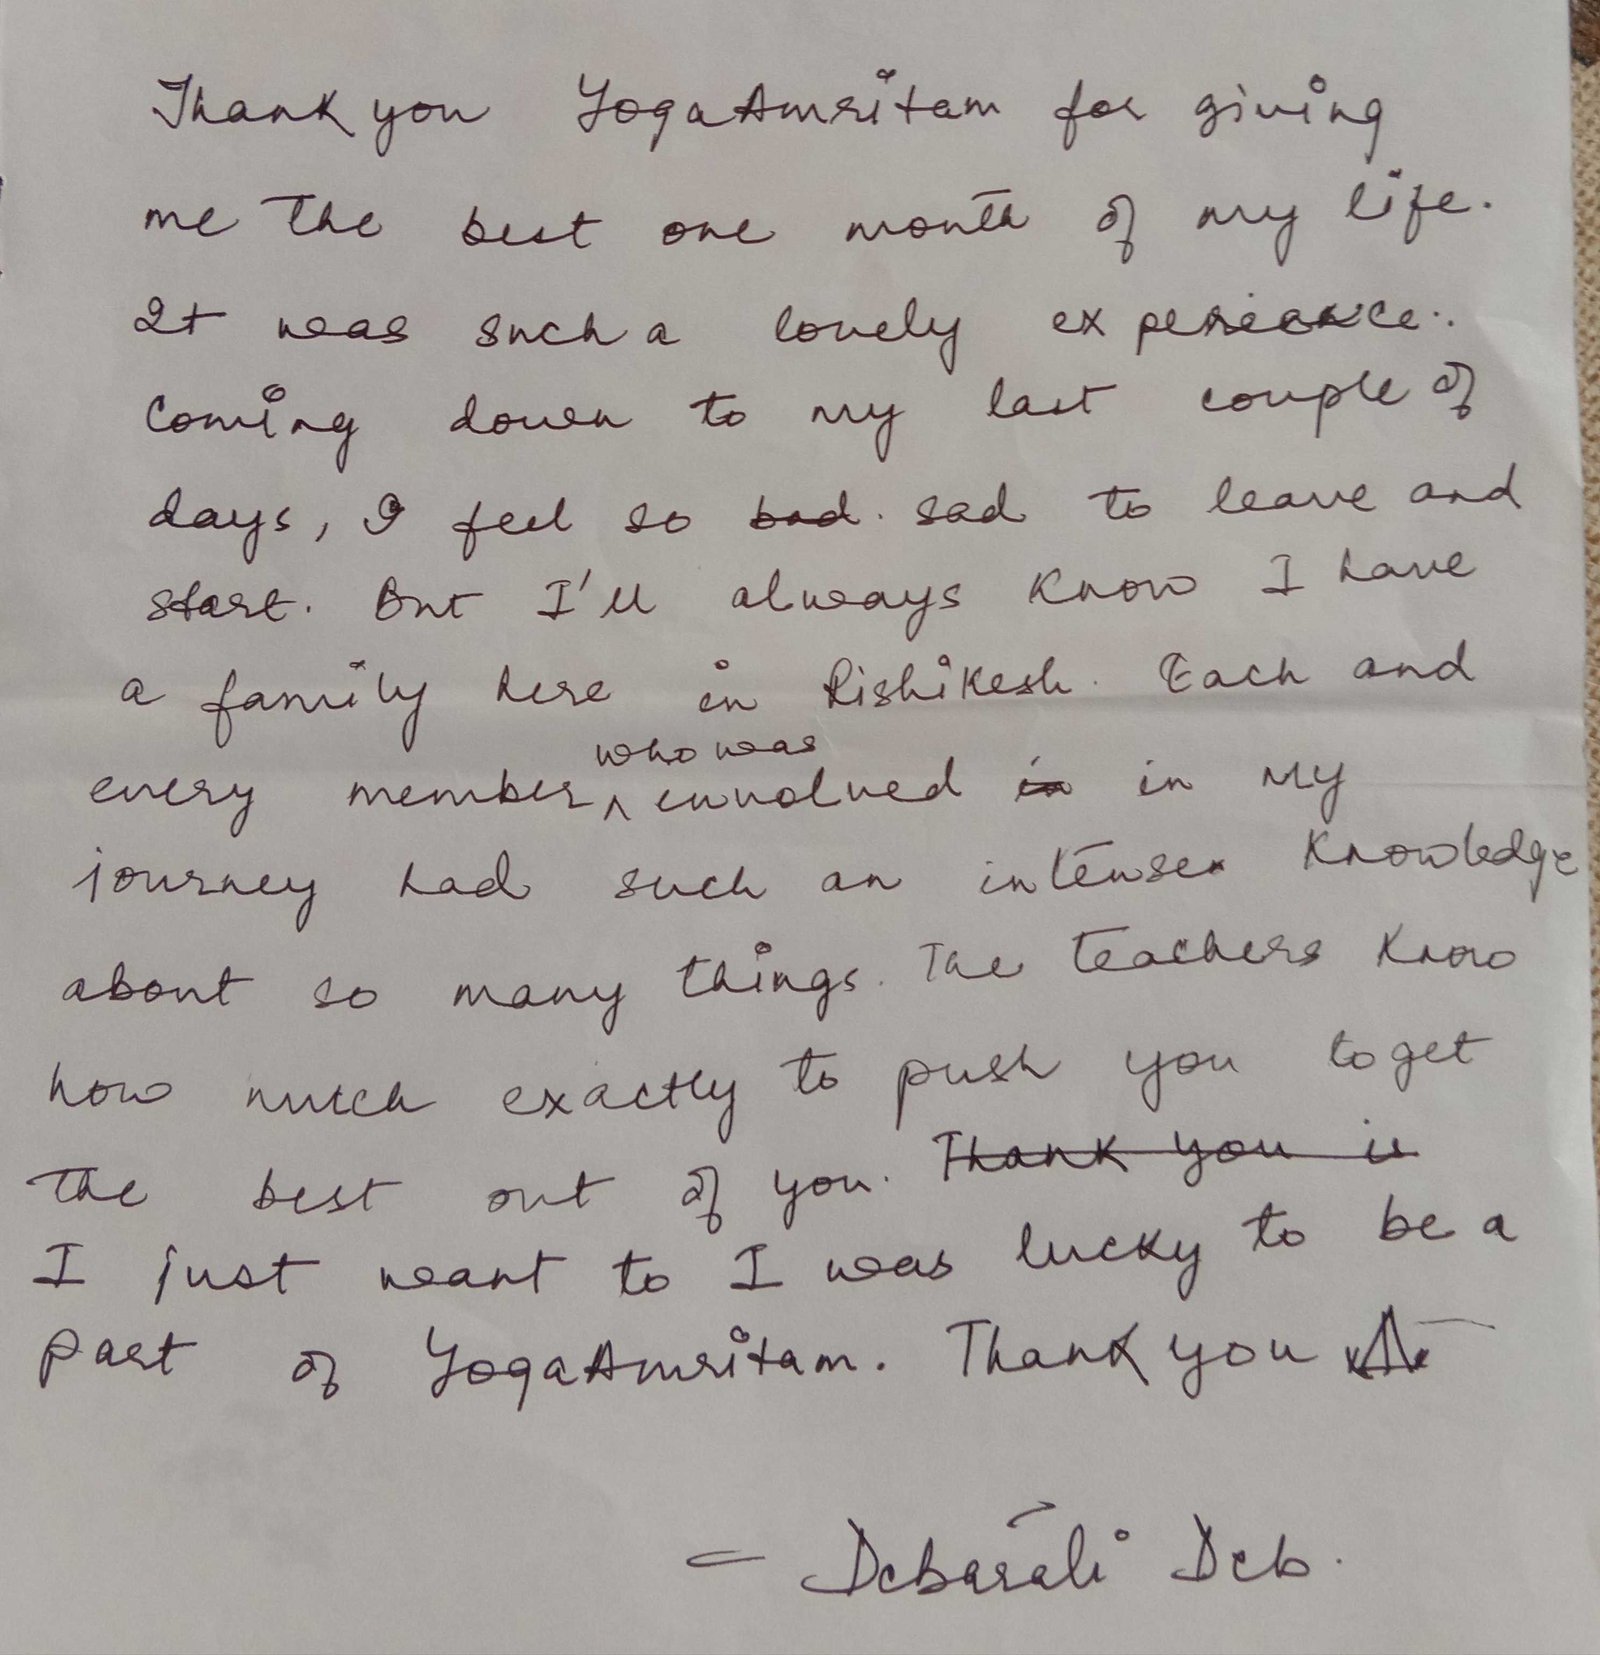 Thank you YogaAmritam for giving
me the best one month of my life.
It was such a lovely experience.
Coming down to my last couple of
days, I feel so bad. sad to leave and
start. But I'll always know I have
a family here in Rishikesh. Each and
every member who was involved in in my
journey had such an intense knowledge
about so many things. The teachers know
how much exactly to push you to get
the best out of you. Thank you is
I just want to I was lucky to be a
part of YogaAmritam. Thank you
- Debarati Deb.